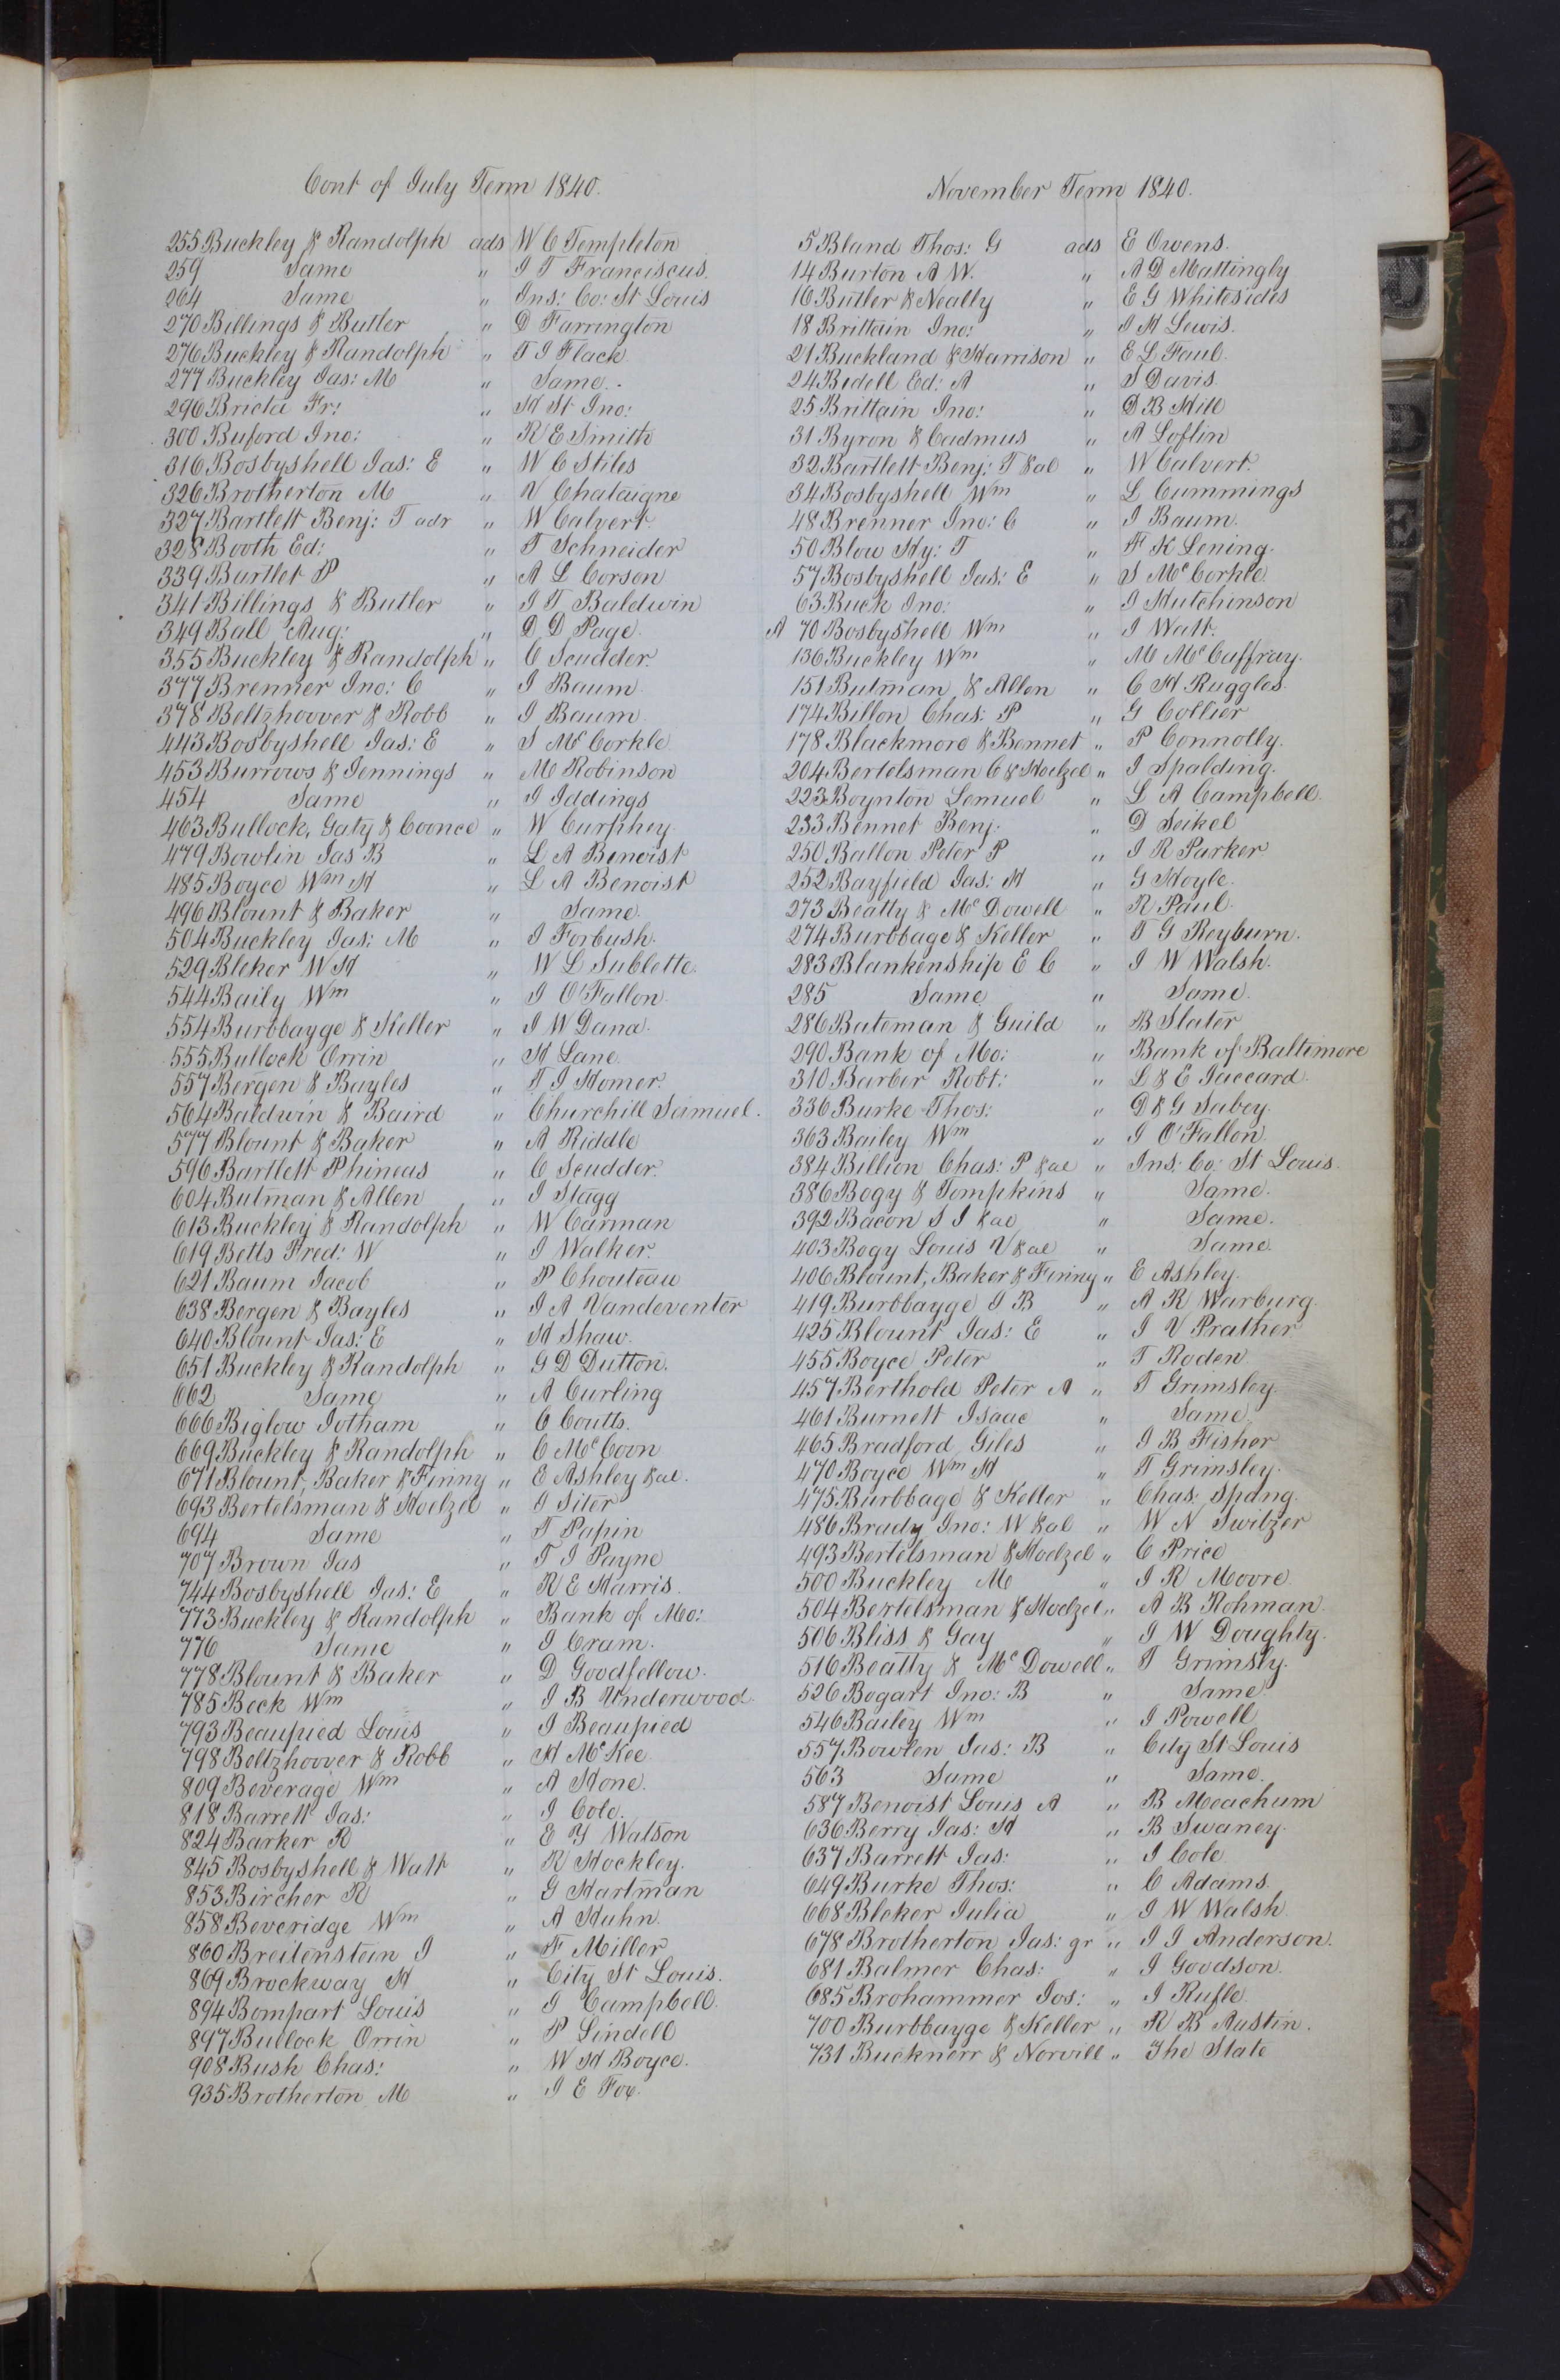 Cont of July Term 1840.
255 Buckley & Randolph ads W C Templeton
259 Same " J T Franciscus.
264 Same " Ins: Co: St Louis
270 Billings & Butler " D Farrington
276 Buckley & Randolph " T J Flack
277 Buckley Jas: M " Same.
296 Fr: " H St Jno:
300 Buford Jno: " R E Smith
316 Bosbyshell Jas: E " W C Stiles
326 Brotherton M " V Chataigne
327 Bartlett Benj: T adr " W Calvert.
328 Booth Ed: " T Schneider
339 Bartlet P " A L Corson
341 Billings & Butler " J T Baldwin
349 Ball Aug: " D D Page.
355 Buckley & Randolph " C Scudder.
377 Brenner Jno: C " J Baum
378 Beltzhoover & Robb " J Baum
443 Bosbyshell Jas: E " S Mc Corkle
453 Burrows & Jennings " M Robinson
454 Same " J Iddings
463 Bullock, Gaty & Coonce " W Curphey.
479 Bowlin Jas B " L A Benoist
485 Boyce Wm H " L A Benoist
496 Blount & Baker " Same.
504 Buckley Jas: M " J Forbush.
529 Bleker W H " W L Sublette.
544 Baily Wm " J O'Fallon.
554 Burbbayge & Keller " J W Dana.
555 Bullock Orrin " H Lane.
557 Bergen & Bayles " T J Homer.
564 Baldwin & Baird " Churchill Samuel.
577 Blount & Baker " A Riddle
596 Bartlett Phineas " C Scudder.
604 Butman & Allen " J Stagg
613 Buckley & Randolph " W Carman
619 Betts Fred: W " J Walker.
621 Baum Jacob " P Chouteau
638 Bergen & Bayles " J A Vandeventer
640 Blount Jas: E " H Shaw.
651 Buckley & Randolph " G D Dutton.
662 Same " A Curling
666 Biglow Jotham " C Coutts.
669 Buckley & Randolph " C Mc Coon
671 Blount, Baker & Finny " E Ashley &al.
693 Bertelsman & Hoelzel " J Siter
694 Same " T Papin
707 Brown Jas " T J Payne
744 Bosbyshell Jas: E " R E Harris.
773 Buckley & Randolph " Bank of Mo:
776 Same " J Cram.
778 Blount & Baker " D Goodfellow.
785 Beck Wm " J B Underwood
793 Beaupied Louis " J Beaupied
798 Beltzhoover & Robb " H Mc Kee
809 Beverage Wm " A Hone.
818 Barrett Jas: " J Cole.
824 Barker R " E Y Watson
845 Bosbyshell & Watt " R Hockley.
853 Bircher R " G Hartman
858 Beveridge Wm " A Huhn.
860 Breitenstein J " F Miller
869 Brockway H " City St Louis.
894 Bompart Louis " J Campbell.
897 Bullock Orrin " P Lindell
908 Bush Chas: " W H Boyce.
935 Brotherton M " J E Fox.
November Term 1840.
5 Bland Thos: G ads E Owens.
14 Burton A W. " A D Mattingly
16 Butler & Neally " E G Whitesides
18 Brittain Jno: " J H Lewis.
21 Buckland & Harrison " E L Faul.
24 Bedell Ed: A " S Davis.
25 Brittain Jno: " D B Hill
31 Byron & Cadmus " A Loflin
32 Bartlett Benj: T &al " W Calvert.
34 Bosbyshell Wm " L Cummings
48 Brenner Jno: C " J Baum.
50 Blow Hy: T " F K Lening.
57 Bosbyshell Jas: E " S Mc Corkle.
63 Buck Jno: " J Hutchinson
A 70 Bosbyshell Wm " J Watt.
136 Buckley Wm " M Mc Caffray.
151 Butman & Allen " C H Ruggles.
174 Billon Chas: P " G Collier
178 Blackmore & Bennet " P Connolly.
204 Bertelsman C & Hoelzel " J Spalding.
223 Boynton Lemuel " L A Campbell.
233 Bennet Benj: " D Seikel
250 Ballon Peter P " J R Parker.
252 Bayfield Jas: H " G Hoyle.
273 Beatty & Mc Dowell " R Paul.
274 Burbbage & Keller " T G Reyburn.
283 Blankenship E C " J W Walsh.
285 Same " Same.
286 Bateman & Guild " B Slater
290 Bank of Mo: " Bank of Baltimore
310 Barber Robt: " L & E Jaccard.
336 Burke Thos: " D & G Sabey.
363 Bailey Wm " J O'Fallon.
384 Billion Chas: P &al " Ins: Co: St Louis.
386 Bogy & Tompkins " Same.
392 Bacon S J &al " Same.
403 Bogy Louis V &al " Same.
406 Blount, Baker & Finny " E Ashley.
419 Burbbayge J B " A R Warburg.
425 Blount Jas: E " J V Prather
455 Boyce Peter " T Roden
457 Berthold Peter A " T Grimsley.
461 Burnett Isaac " Same
465 Bradford Giles " J B Fisher
470 Boyce Wm H " T Grimsley.
475 Burbbage & Keller " Chas: Spang.
486 Brady Jno: W &al " W N Switzer
493 Bertelsman & Hoelzel " C Price
500 Buckley M " J R Moore.
504 Bertelsman & Hoelzel " A B Rohman
506 Bliss & Gay " J W Doughty.
516 Beatty & Mc Dowell " T Grimsly.
526 Bogart Jno: B " Same.
546 Bailey Wm " J Powell
557 Bowlen Jas: B " City St Louis
563 Same " Same.
587 Benoist Louis A " B Meachum
636 Berry Jas: H " B Swaney.
637 Barrett Jas: " J Cole
649 Burke Thos: " C Adams.
668 Bleker Julia " J W Walsh
678 Brotherton Jas: gr " J J Anderson.
681 Balmer Chas: " J Goodson.
685 Brohammer Jos: " J Rufle.
700 Burbbayge & Keller " R B Austin.
731 Bucknerr & Norvill " The State